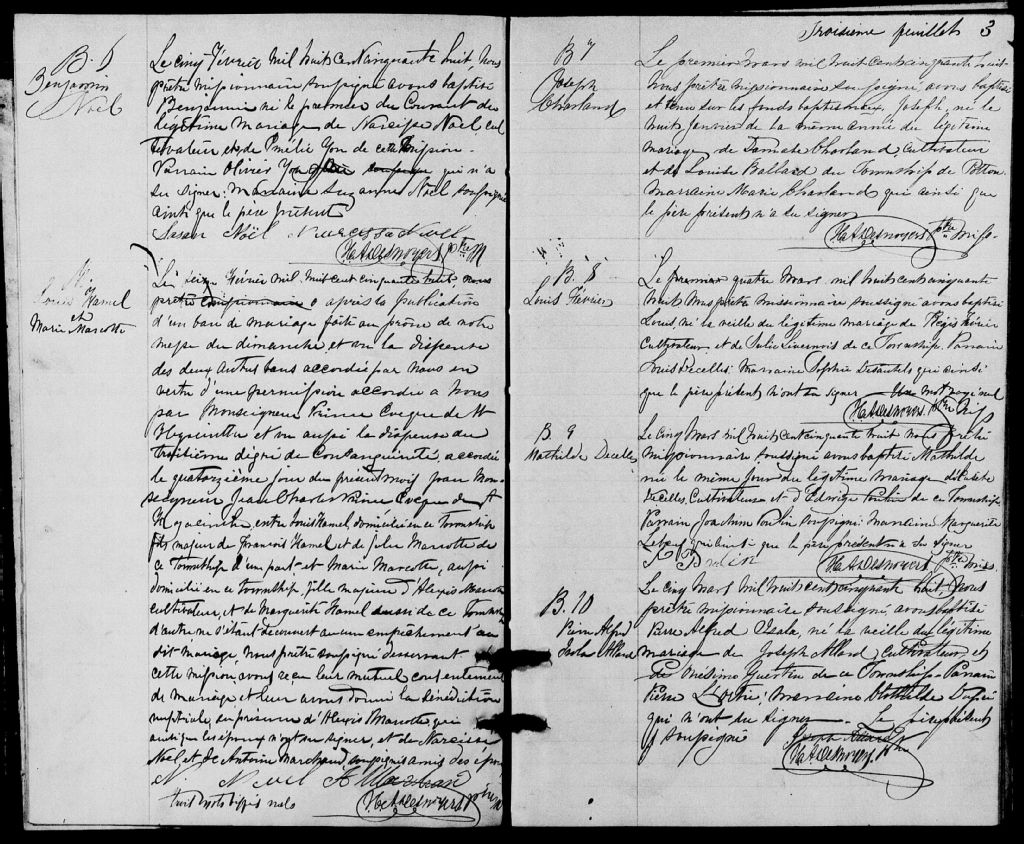 B. 6
Benjamin
Noël
Le cinq Février mil huit cent cinquante huit, Nous
prêtre missionnaire soussigné avons baptisé
Benjamin né le premier du Courant du
légitime mariage de Narcisse Noël cul
tivateur et de Emélie Yon de cette Mission.
Parrain Olivier Yon qui n'a
su signer. Marraine Suzanne Noël soussignée
ainsi que le père présent
Susan Noël Narcisse Noel
H. A. Desnoyers ptre M
M.
Louis Hamel
et
Marie Marcotte
Le Février mil huit cent cinquante huit, nous
prêtre missionnaire après la publication
d'un ban de mariage faite au prône de notre
messe du dimanche, et vu la dispense
des deux autres bans accordée par nous en
vertu d'une permission accordée à nous
par Monseigneur Prince Evêque de St
Hyacinthe et vu aussi la dispense du
Troisième dégré de Consanguinité, accordée
le quatorzième jour du présent mois par Mon-
seigneur Jean Charles Prince Evêque de St
Hyacinthe, entre Louis Hamel, domicilié en ce Township
fils majeur de François Hamel et de Julie Marcotte de
ce Township d'un part et Marie Marcotte, aussi
domiciliée en ce Township, fille majeure d'Alexis Marcotte
cultivateur, et de Marguerite Hamel aussi de ce Township
d'autre ne s'étant découvert aucun empêchement au
dit mariage, Nous prêtre soussigné desservant
cette mission, avons reçu leur mutuel consentement
de mariage et leur avons donné la bénédiction
nuptiale, en présence d'Alexis Marcotte qui
ainsi que les époux n'ont su signer, et de Narcisse
Noël et de Antoine Marchand soussignés amis des époux
N. Noel A Marchand
huit mots biffés nuls
H. A. Desnoyers Ptre M
Troisième feuillet 3
B 7
Joseph
Charland
Le premier Mars mil huit cent cinquante huit
Nous prêtre missionnaire soussigné, avons baptisé
et tenu sur les fonds baptismaux, Joseph, né le
huit Janvier de la même année du légitime
mariage de Damase Charland, Cultivateur
et de Louise Ballard du Township de Potton.
Marraine Marie Charland qui ainsi que
le père présent n'a su signer
H. A. Desnoyers ptre Miss.
B. 8
Louis Février
Le premier quatre Mars mil huit cent cinquante
huit, Nous prêtre Missionnaire soussigné avons baptisé
Louis, né la veille du légitime mariage de Régis Février
Cultivateur et de Julie Livernois de ce Township. Parrain
Louis Decelles, Marraine Sophie Desautels qui ainsi
que le père présent n'ont su signer Un mot rayé nul
H. A. Desnoyers ptre Miss
B. 9
Mathilde Decelles
Le cinq Mars mil huit cent cinquante huit nous prêtre
Missionnaire, soussigné avons baptisé Mathilde
née le même jour du légitime mariage de
Decelles, Cultivateur et d'Edwige de ce Township
Parrain soussigné. Marraine Marguerite
qui ainsi que le père présent n'a su signer
H. A. Desnoyers ptre Miss
B. 10
Pierre Alfred
Isala Allard
Le Cinq Mars Mil huit cent cinquante huit, Nous
prêtre missionnaire soussigné, avons baptisé
Pierre Alfred Isala, né la veille du légitime
mariage de Joseph Allard Cultivateur et
de Onésime Guertin de ce Township. Parrain
Pierre marraine Mathilde
qui n'ont su signer. Le père présent
soussigné
Joseph Allard
H. A. Desnoyers Ptre